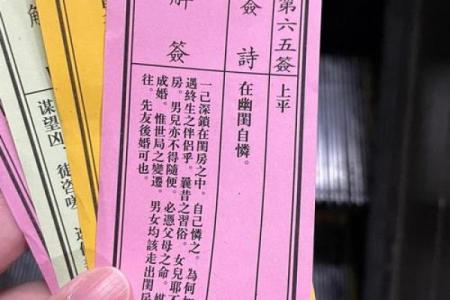 第六五簽 上平
簽詩 在幽閨自憐。
解簽
一己深鎖在閨房之中。自己憐之。為何
遇終生之伴侶乎。曩昔之習俗。女兒耶不
房。男兒亦不得隨便。必憑父母之命。媒
成婚。惟世局之變遷。男女均該走出閨
往。先友後婚可也。
解
謀望凶 徒咨嗟